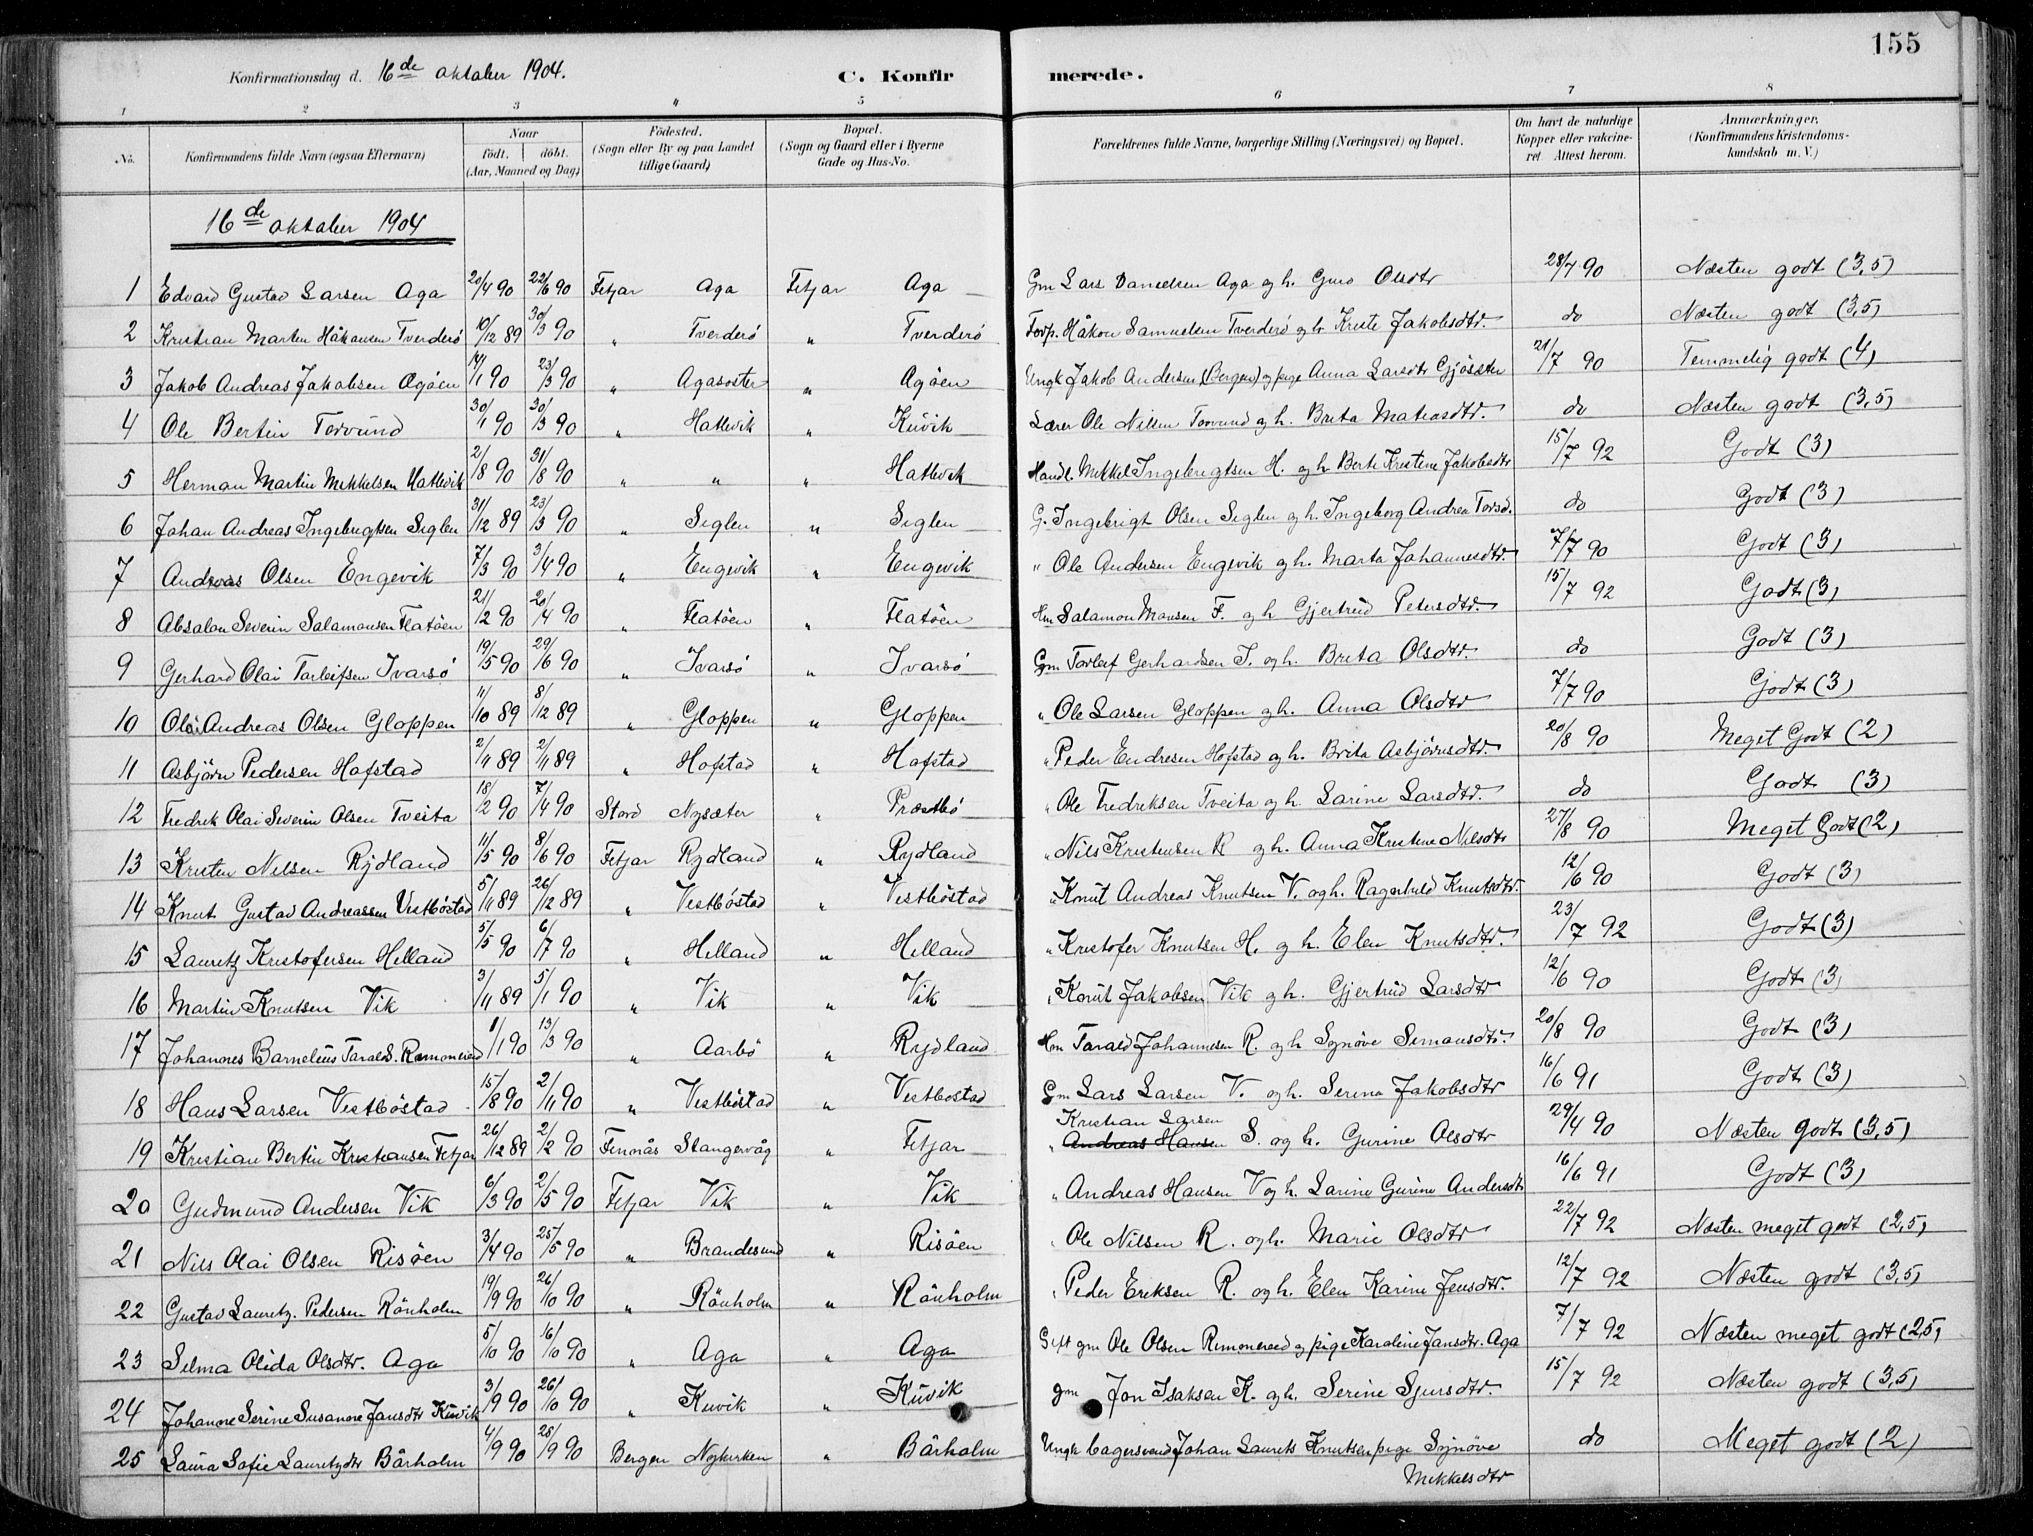 155
Konfirmationsdag d. 16de oktober 1904. C. Konfirmerede.
1 2 3 4 5 6 7 8
No. Konfirmandens fulde Navn (ogsaa Efternavn) Naar födt. döbt. (Aar, Maaned og Dag) Födested. (Sogn eller By og paa Landet tillige Gaard) Bopæl. (Sogn og Gaard eller i Byerne Gade og Hus-No. Forældrenes fulde Navne, borgerlige Stilling (Næringsvei) og Bopæl. Om havt de naturlige Kopper eller vakcineret Attest herom. Anmærkninger, (Konfirmandens Kristendomskundskab m. V.)
16de oktober 1904
1 Edvard Gustav Larsen Aga 20/4 90 22/6 90 Fitjar Aga Fitjar Aga Gm Lars Danielsen Aga og h. Guro Olsdtr 28/7 90 Næsten godt (3,5)
2 Kristian Martin Håkonsen Tverderö 10/12 89 30/3 90 " Tverderö " Tverderö Forp. Håkon Samuelsen Tverderö og h. Kriste Jakobsdtr. do Næsten godt (3,5)
3 Jakob Andreas Jakobsen Agöen 4/1 90 23/3 90 " Agasoster " Agöen Ungk Jakob Andersen (Bergen) og pige Anna Larsdtr Gjösæter 21/7 90 Temmelig godt (4)
4 Ole Bertin Torvund 30/1 90 30/3 90 " Hatlevik " Kuvik Lærer Ole Nilsen Torvund og h. Brita Matiasdtr. do Næsten godt (3,5)
5 Herman Martin Mikkelsen Hatlevik 2/8 90 31/8 90 " " " Hatlevik Handl. Mikkel Ingebrigtsen H. og h Berte Kristine Jakobsdtr 15/7 92 Godt (3)
6 Johan Andreas Ingebrigtsen Siglen 31/12 89 23/3 90 " Siglen " Siglen G. Ingebrigt Olsen Siglen og h. Ingeborg Andrea Torsd. do Godt (3)
7 Andreas Olsen Engevik 7/3 90 3/4 90 " Engevik " Engevik " Ole Andersen Engevik og h. Marta Johannesdtr. 7/7 90 Godt (3)
8 Absalon Severin Salamonsen Flatöen 21/2 90 20/4 90 " Flatöen " Flatöen Hm Salamon Monsen F. og h Gjertrud Petersdtr. 15/7 92 Godt (3)
9 Gerhard Olai Torleifsen Ivarsö 19/5 90 29/6 90 " Ivarsö " Ivarsö Gm Torleif Gerhardsen I. og h. Brita Olsdtr. do Godt (3)
10 Olai Andreas Olsen Gloppen 11/10 89 8/12 89 " Gloppen " Gloppen " Ole Larsen Gloppen og h. Anna Olsdtr 7/7 90 Godt (3)
11 Asbjörn Pedersen Hofstad 2/11 89 2/11 89 " Hofstad " Hofstad " Peder Endresen Hofstad og h. Brita Asbjörnsdtr. 20/8 90 Meget Godt (2)
12 Fredrik Olai Severin Olsen Tveita 18/2 90 7/4 90 Stord Nysæter " Præstbö " Ole Fredriksen Tveita og h. Larine Larsdtr. do Godt (3)
13 Kristen Nilsen Rydland 11/5 90 8/6 90 Fitjar Rydland " Rydland " Nils Kristensen R og h. Anna Kristine Nilsdtr 27/8 90 Meget Godt (2)
14 Knut Gustav Andreassen Vestböstad 5/11 89 26/12 89 " Vestböstad " Vestböstad " Knut Andreas Knutsen V. og h. Ragnhild Knutsdtr. 12/6 90 Godt (3)
15 Lauritz Kristofersen Helland 5/5 90 6/7 90 " Helland " Helland " Kristofer Knutsen H. og h. Elen Knutsdtr. 23/7 92 Godt (3)
16 Martin Knutsen Vik 3/11 89 5/1 90 " Vik " Vik " Knut Jakobsen Vik og h. Gjertrud Larsdtr 12/6 90 Godt (3)
17 Johannes Barnelius Tarald. Rimmereid 1/1 90 13/3 90 " Aarbö " Rydland Hm Tarald Johannesen R. og h Synöve Simonsdtr. 20/8 90 Godt (3)
18 Hans Larsen Vestböstad 15/8 90 2/11 90 " Vestböstad " Vestbostad Gm Lars Larsen V. og h. Serina Jakobsdtr 16/6 91 Godt (3)
19 Kristian Bertin Kristiansen Fitjar 26/12 89 2/2 90 Finnås Stangervåg " Fitjar " Kristian Larsen Andreas Hansen S. og h. Gurine Olsdtr 29/4 90 Næsten godt (3,5)
20 Gudmund Andersen Vik 6/3 90 2/5 90 Fitjar Vik " Vik " Andreas Hansen V og h. Larine Gurine Andersdtr 16/6 91 Godt (3)
21 Nils Olai Olsen Risöen 3/4 90 25/5 90 " Brandesund " Risöen " Ole Nilsen R. og h. Marie Olsdtr 22/7 92 Næsten meget godt (2,5)
22 Gustav Lauritz. Pedersen Rönholm 19/9 90 26/10 90 " Rönholm " Rönholm " Peder Eriksen R. og h. Elen Karine Jensdtr. 12/7 92 Næsten godt (3,5)
23 Selma Olida Olsdtr. Aga 5/10 90 16/10 90 " Aga " Aga Gift gm Ole Olsen Rimmereid og pige Karoline Jansdtr. Aga 7/7 92 Næsten meget godt (2,5)
24 Johanne Serine Susanne Jonsdtr Kuvik 3/9 90 26/10 90 " Kuvik " Kuvik gm Jon Isaksen K. og h. Serine Sjursdtr. 15/7 92 Næsten godt (3,5)
25 Laura Sofie Lauritzdtr Bårholm 4/9 90 25/9 90 Bergen Nykirken " Bårholm Ungk bagersvend Johan Laurits Knutsen pige Synöve Mikkelsdtr do Meget godt (2)